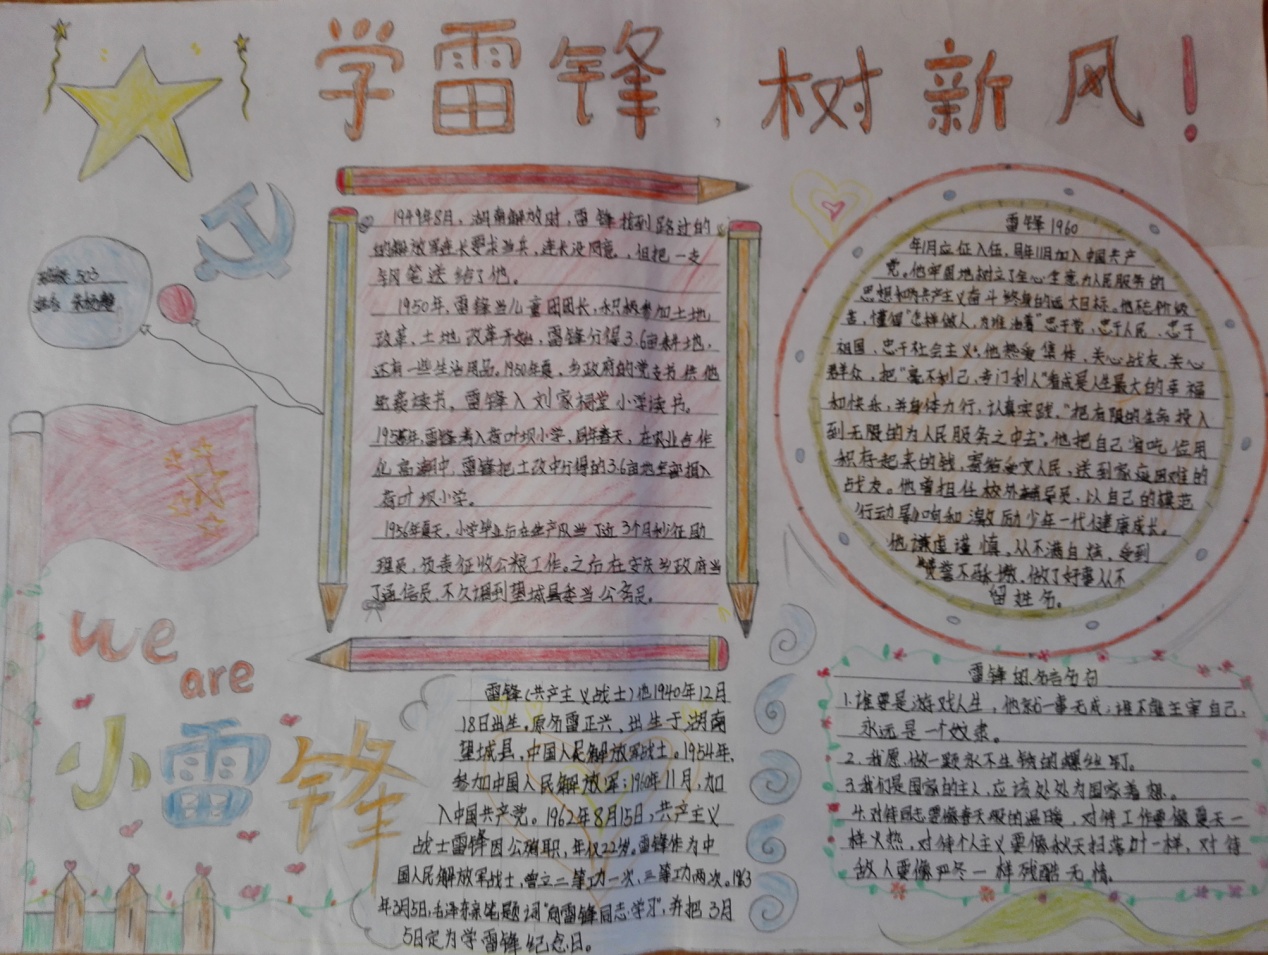 学雷锋,树新风!
503
1949年8月,湖南解放时,雷锋找到路过的
的解放军连长要求当兵,连长没同意,但把一支
钢笔送给了他。
1950年,雷锋当儿童团团长,积极参加土地
改革,土地改革开始,雷锋分得3.6亩耕地,
还有一些生活用品。1950年夏,乡政府的党支书供他
免费读书,雷锋入刘家祠堂小学读书。
年,雷锋考入荷叶坝小学,同年春天,在农业合作
化高潮中,雷锋把土改中分得的3.6亩地全部捐入
荷叶坝小学。
1956年夏天,小学毕业后在生产队当了近3个月秋征助
理员,负责征收公粮工作。之后在安庆乡政府当
了通信员,不久调到望城县委当公务员。
雷锋1960
年1月应征入伍,同年11月加入中国共产
党。他牢固地树立了全心全意为人民服务的
思想和为共产主义奋斗终身的远大目标。他
言,懂得"怎样做人,为谁活着"忠于党、忠于人民、忠于
祖国、忠于社会主义。他热爱集体,关心战友,关心
群众,把"毫不利己,专门利人"看成是人生最大的幸福
和快乐,并身体力行,认真实践,"把有限的生命投入
到无限的为人民服务之中去"。他把自己省吃俭用
积存起来的钱,寄给受灾人民,送到家庭困难的
战友。他曾担任校外辅导员,以自己的模范
行动影响和激励少年一代健康成长。
他谦虚谨慎,从不满自炫,受到
赞誉不骄傲,做了好事从不
留姓名。
we
are
小雷锋
雷锋(共产主义战士)他1940年12月
18日出生,原名雷正兴,出生于湖南
望城县,中国人民解放军战士。1954年,
参加中国人民解放军;1960年11月,加
入中国共产党。1962年8月15日,共产主义
战士雷锋因公殉职,年仅22岁。雷锋作为中
国人民解放军战士,曾立二等功一次,三等功两次。1963
年3月5日,毛泽东亲笔题词"向雷锋同志学习",并把3月
5日定为学雷锋纪念日。
雷锋 名言名句
1.谁要是游戏人生,他就一事无成;谁不能主宰自己,
永远是一个奴隶。
2.我愿做一颗永不生锈的螺丝钉。
3.我们是国家的主人,应该处处为国家着想。
4.对待同志要像春天般的温暖,对待工作要像夏天一
样火热,对待个人主义要像秋天扫落叶一样,对待
敌人要像严冬一样残酷无情。